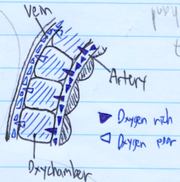 Vein
Artery
Oxygen rich
Oxygen poor
Oxychamber